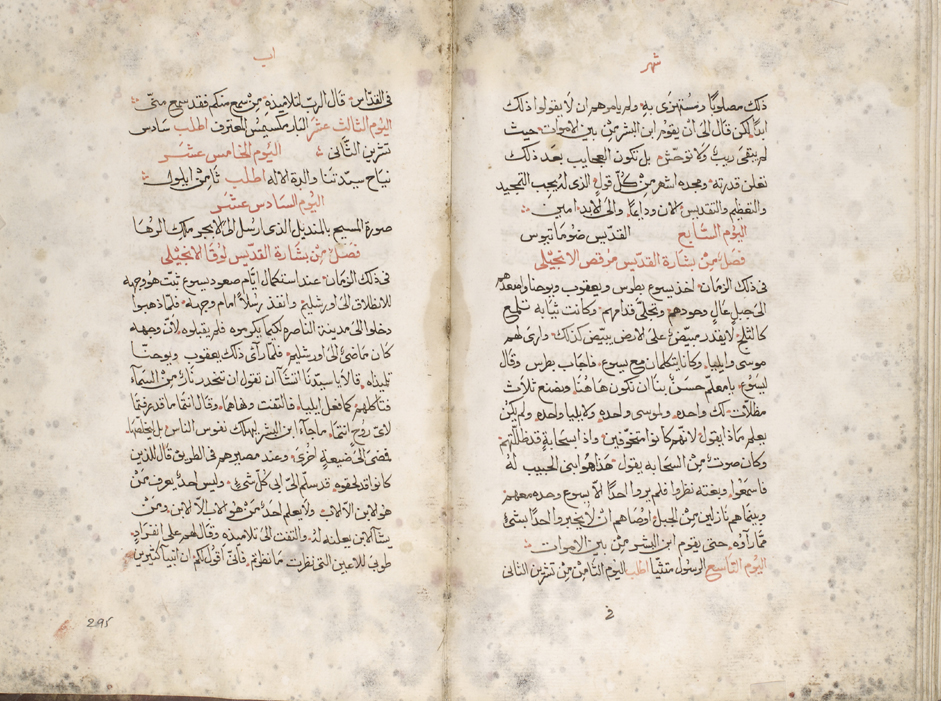 شهر
ذلك مصلوبًا ومستهزى به ولم يامرهم ان لا يقولوا ذلك
ابدًا لكن قال الى أن يقوم ابن البشر من بين الاموات حيث
لم يبقى ريب ولا توحّش بل تكون العجايب بعد ذلك
تعلن قدرته ومجده اشهر من كل قول الذى له يجب التمجيد
والتعظيم والتقديس الان ودايمًا والى الابد امين
اليوم السابع القديس ضوماتيوس
فصل من بشارة القديس مرقص الانجيلى
فى ذلك الزمان اخذ يسوع بطرس ويعقوب ويوحنا واصعدهم
الى جبل عال وحدهم وتجلى قدامهم وكانت ثيابه تلمع
كالثلج لا يقدر مبيّض على الارض يبيّض كذلك وارى لهم
موسى وايليا وكانا يتكلمان مع يسوع فاجاب بطرس وقال
ليسوع يا معلم حسن بنا ان نكون هاهنا ونصنع ثلاث
مظلات لك واحده ولموسى واحده ولايليا واحده ولم يكن
يعلم ماذا يقول لانهم كانوا متخوّفين واذا سحابة قد ظللتهم
وكان صوت من السحابه يقول هذا هو ابنى الحبيب له
فاسمعوا وبغتة نظروا فلم يروا احدًا الا يسوع وحده معهم
وبينما هم نازلين من الجبل اوصاهم ان لا يخبروا احدًا بشئ
مما رآوه حتى يقوم ابن البشر من بين الاموات
اليوم التاسع الرسول متثيا اطلب اليوم الثامن من تشرين الثانى
فى
اب
فى القدّاس قال الرب لتلاميذه من سمع منكم فقد سمع منّى
اليوم الثالث عشر البار مكسيمس المعترف اطلب سادس
تشرين الثانى اليوم الخامس عشر
نياح سيدتنا والدة الاله اطلب ثامن ايلول
اليوم السادس عشر
صورة المسيح بالمنديل الذى ارسل الى الابجر ملك الرها
فصل من بشارة القديس لوقا الانجيلى
فى ذلك الزمان عند استكمال ايّام صعود يسوع ثبت هو وجهه
للانطلاق الى اورشليم وانفذ رسلاً امام وجهه فلما ذهبوا
دخلوا الى مدينة الناصره لكيما يكرموه فلم يقبلوه لان وجهه
كان ماضى الى اورشليم فلما رآى ذلك يعقوب ويوحنا
تليذاه قالا يا سيدنا اتشآ ان نقول ان تنحدر نار من السمآ
فتاكلهم كما فعل ايليا فالتفت ونهاهما وقال انتما ما قد عرفتما
لاى روح انتما ما جآ ابن البشر يهلك نفوس الناس بل يخلصها
فمضى الى ضيعة اخرى وعند مصيرهم فى الطريق قال للذين
كانوا قد لحقوه قد سلم الىّ ابى كل شئ وليس احد يعرف من
هو الابن الا الاب ولا يعلم احد من هو الاب الا الابن ومن
يشآ الابن يعلنه له والتفت الى تلاميذه وقال لهم على انفراد
طوبى للاعين التى نظرت ما نظرتم فانى اقول لكم ان انبيآ كثيرين
295